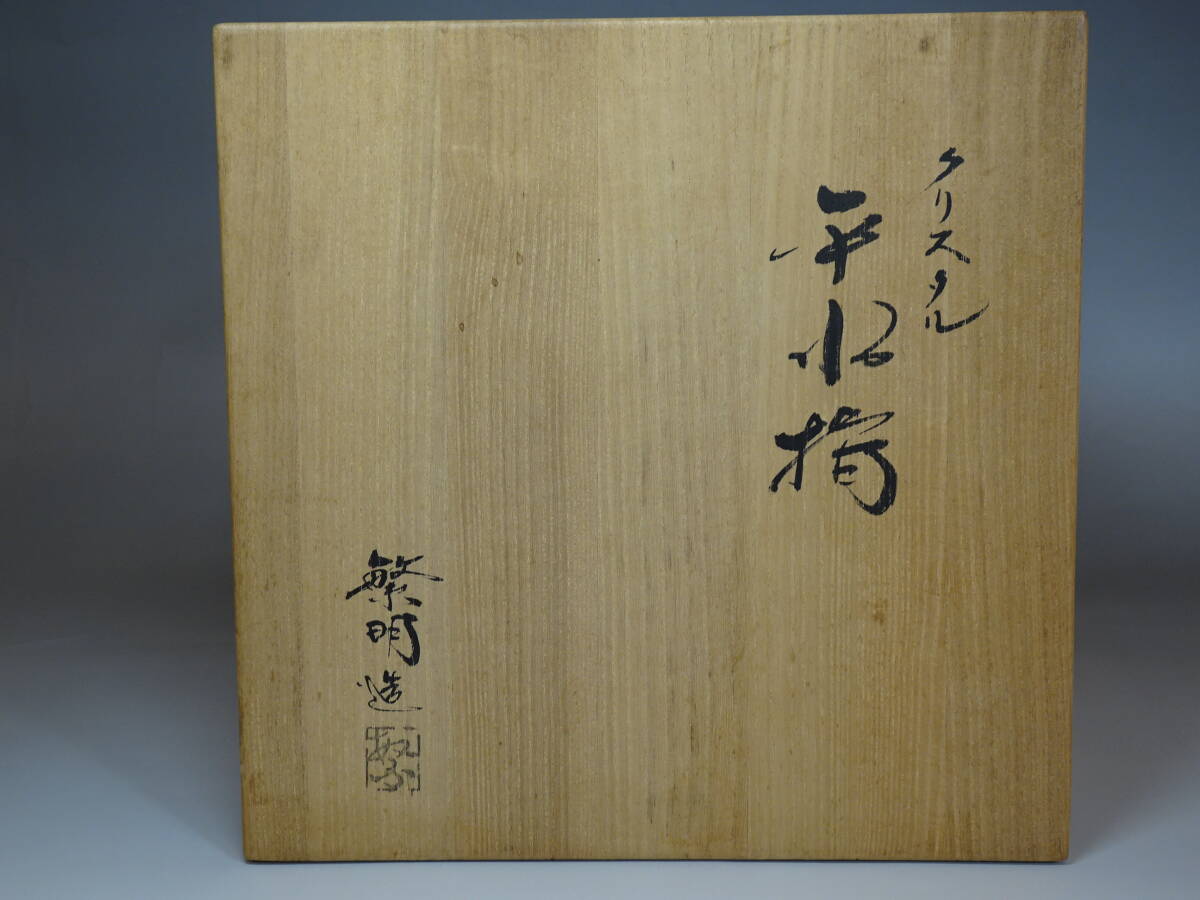 クリスタル
平水指
繁明造